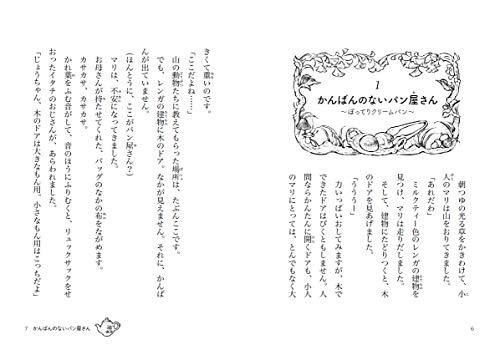 1
かんばんのないパン屋さん
〜ぽってりクリームパン〜
朝つゆの光る草をかきわけて、小
人のマリは山をおりてきました。
「あれだわ」
ミルクティー色のレンガの建物を
見つけ、マリは走りだしました。
そして、建物にたどりつくと、木
のドアを見あげました。
「ううう！」
力いっぱいおしてみますが、木で
できたドアはびくともしません。人
間ならかんたんに開くドアも、小人
のマリにとっては、とんでもなく大
6
きくて重いのです。
「ここだよね……」
山の動物たちに教えてもらった場所は、たぶんここです。
でも、レンガの建物に木のドア。なかが見えません。それに、かんば
んが出ていません。
（ほんとうに、ここがパン屋さん？）
マリは、不安になってきました。
お母さんが持たせてくれた、バッグのなかの布をながめます。
カサカサ、カサカサ。
かれ葉をふむ音がして、音のほうにふりむくと、リュックサックをせ
おったイタチのおじさんが、あらわれました。
「じょうちゃん、木のドアは大きなもん用。小さなもん用はこっちだよ」
7 かんばんのないパン屋さん